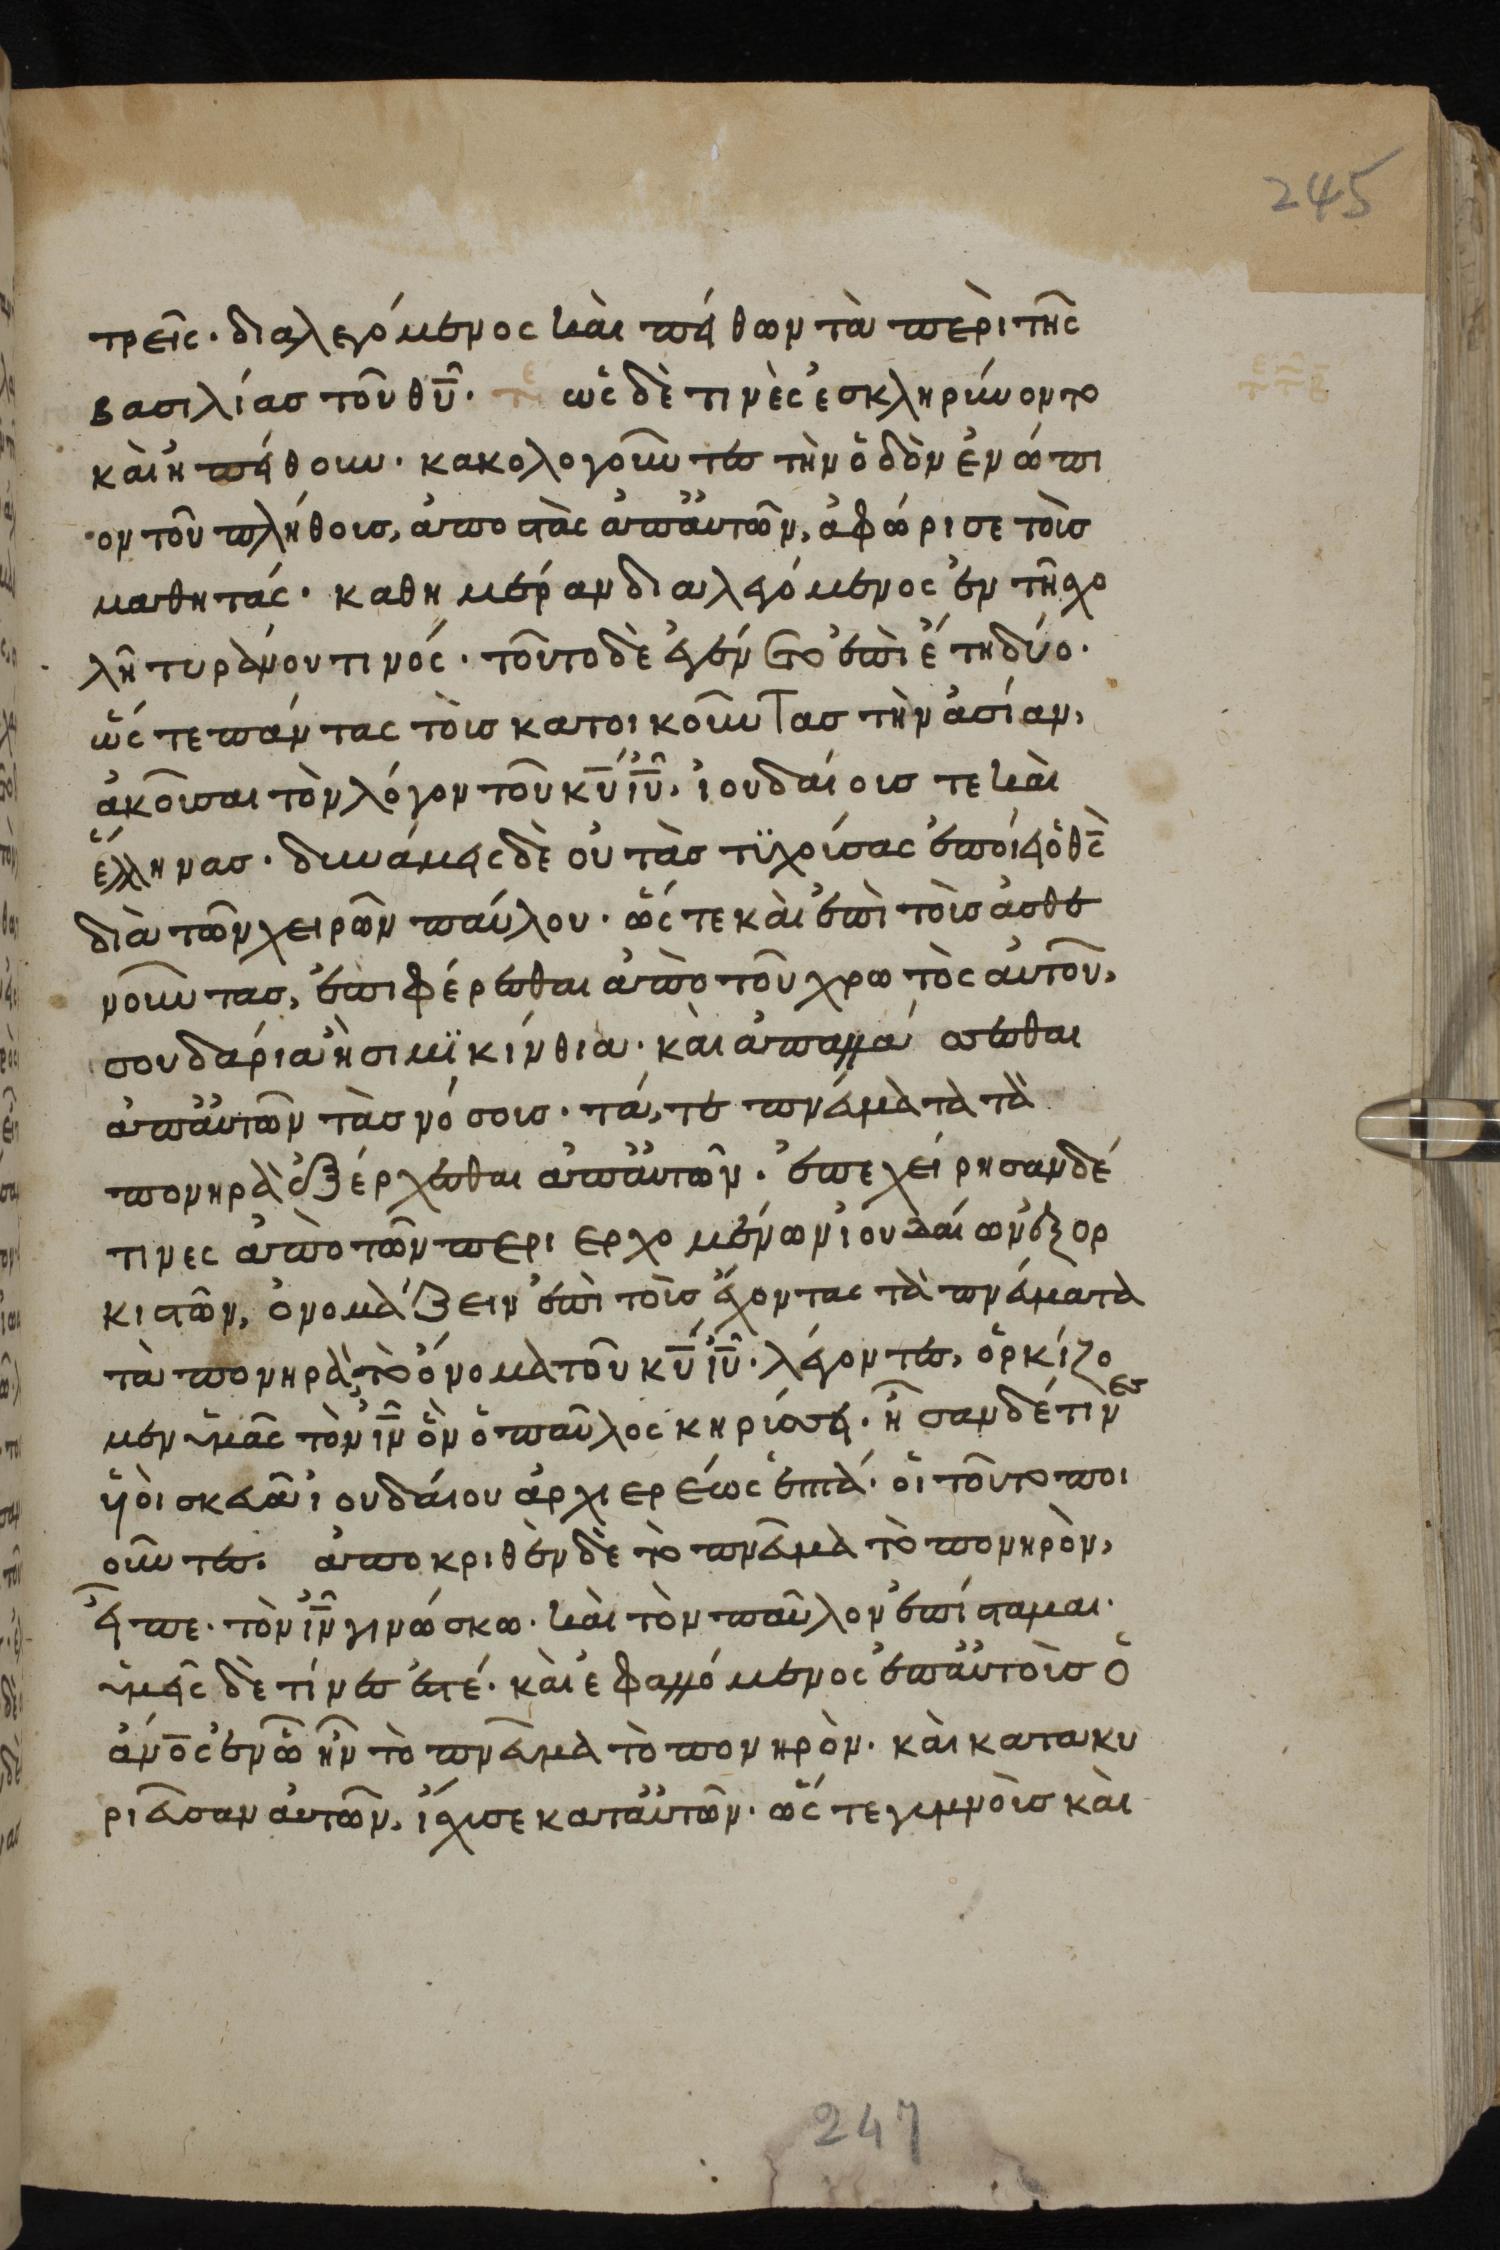 245
τρεῖς· διαλεγόμενος καὶ πείθων τὰ περὶ τῆς
βασιλίας τοῦ θυ̅· τε ὡς δὲ τινὲς ἐσκληρύνοντο
καὶ ἠπείθουν· κακολογοῦντες τὴν ὁδὸν ἐνώπι
ον τοῦ πλήθους, ἀποστὰς ἀπ' αὐτῶν, ἀφώρισε τοὺς
μαθητάς· καθημέραν διαλεγόμενος ἐν τῆ σχο
λῆ τυράννου τινός· τοῦτο δὲ ἐγένετο ἐπὶ ἔτη δύο·
ὥστε πάντας τοὺς κατοικοῦντας τὴν ἀσίαν,
ἀκοῦσαι τὸν λόγον τοῦ κυ̅ ιυ̅, ἰουδαίους τε καὶ
ἕλληνας· δυνάμεις δὲ οὐ τὰς τυχούσας ἐποίει ὁ θς̅
διὰ τῶν χειρῶν παύλου· ὥστε καὶ ἐπὶ τοὺς ἀσθε
νοῦντας, ἐπιφέρεσθαι ἀπὸ τοῦ χρωτὸς αὐτοῦ,
σουδάρια ἢ σιμικίνθια· καὶ ἀπαλλάσσεσθαι
ἀπ' αὐτῶν τὰς νόσους· τά, τε πνεύματα τὰ
πονηρὰ ἐξέρχεσθαι ἀπ' αὐτῶν· ἐπεχείρησαν δέ
τινες ἀπὸ τῶν περιερχομένων ἰουδαίων ἐξορ
κιστῶν, ὀνομάζειν ἐπὶ τοὺς ἔχοντας τὰ πνεύματα
τὰ πονηρὰ τὸ ὄνομα τοῦ κυ̅ ιυ̅· λέγοντες, ὁρκίζο
μεν ὑμᾶς τὸν ιν̅ ὃν ὁ παῦλος κηρύσσει· ἦσαν δέ τινες
υἱοὶ σκευᾶ ἰουδαίου ἀρχιερέως ἑπτά· οἱ τοῦτο ποι
οῦντες· ἀποκριθὲν δὲ τὸ πνεῦμα τὸ πονηρὸν,
εἶπε· τὸν ιν̅ γινώσκω· καὶ τὸν παῦλον ἐπίσταμαι·
ὑμεῖς δὲ τίνες ἐστέ· καὶ ἐφαλλόμενος ἐπ' αὐτοὺς ὁ
ἄνο̅ς ἐν ὧ ἦν τὸ πνεῦμα τὸ πονηρὸν· καὶ κατακυ
ριεῦσαν αὐτῶν, ἴσχυσε κατ' αὐτῶν· ὥστε γυμνοὺς καὶ
247